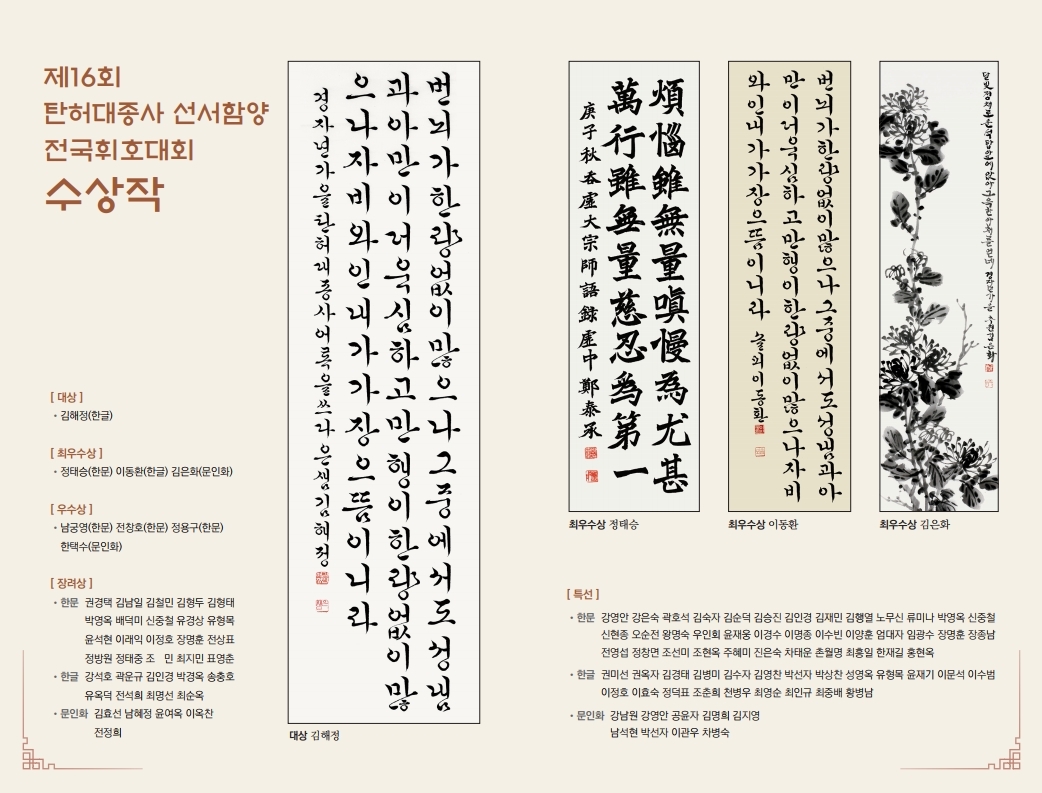 제16회
탄허대종사 선서함양
전국휘호대회
수상작
[ 대상 ]
• 김해정(한글)
[ 최우수상 ]
• 정태승(한문) 이동환(한글) 김은화(문인화)
[ 우수상 ]
• 남궁영(한문) 전창호(한문) 정용구(한문)
한택수(문인화)
[ 장려상 ]
• 한문 권경택 김남일 김철민 김형두 김형태
박영옥 배덕미 신중철 유경상 유형목
윤석현 이래익 이정호 장명훈 전상표
정방원 정태중 조 민 최지민 표영춘
• 한글 강석호 곽운규 김인경 박경옥 송충호
유옥덕 전석희 최명선 최순옥
• 문인화 김효선 남혜정 윤여옥 이옥찬
전정희
번뇌가한량없이많으나그중에서도성냄
과아만이더욱심하고만행이한량없이많
으나자비와인내가가장으뜸이니라
경자년가을탄허대종사어록을쓰다은샘김해정
대상 김해정
煩惱雖無量嗔慢為尤甚
萬行雖無量慈忍為第一
庚子秋呑虛大宗師語錄虛中鄭泰承
최우수상 정태승
번뇌가한량없이많으나그중에서도성냄과아
만이더욱심하고만행이한량없이많으나자비
와인내가가장으뜸이니라 솔뫼이동환
최우수상 이동환
최우수상 김은화
[ 특선 ]
• 한문 강영안 강은숙 곽호석 김숙자 김순덕 김승진 김인경 김재민 김행열 노무신 류미나 박영옥 신중철
신현종 오순전 왕명숙 우인회 윤재웅 이경수 이명종 이수빈 이양훈 엄대자 임광수 장명훈 장종남
전영섭 정창면 조선미 조현옥 주혜미 진은숙 차태운 촌월명 최흥일 한재길 홍현옥
• 한글 권미선 권옥자 김경태 김병미 김수자 김영찬 박선자 박상찬 성영옥 유형목 윤재기 이문석 이수범
이정호 이효숙 정덕표 조춘희 천병우 최영순 최인규 최종배 황병남
• 문인화 강남원 강영안 공윤자 김명희 김지영
남석현 박선자 이관우 차병숙